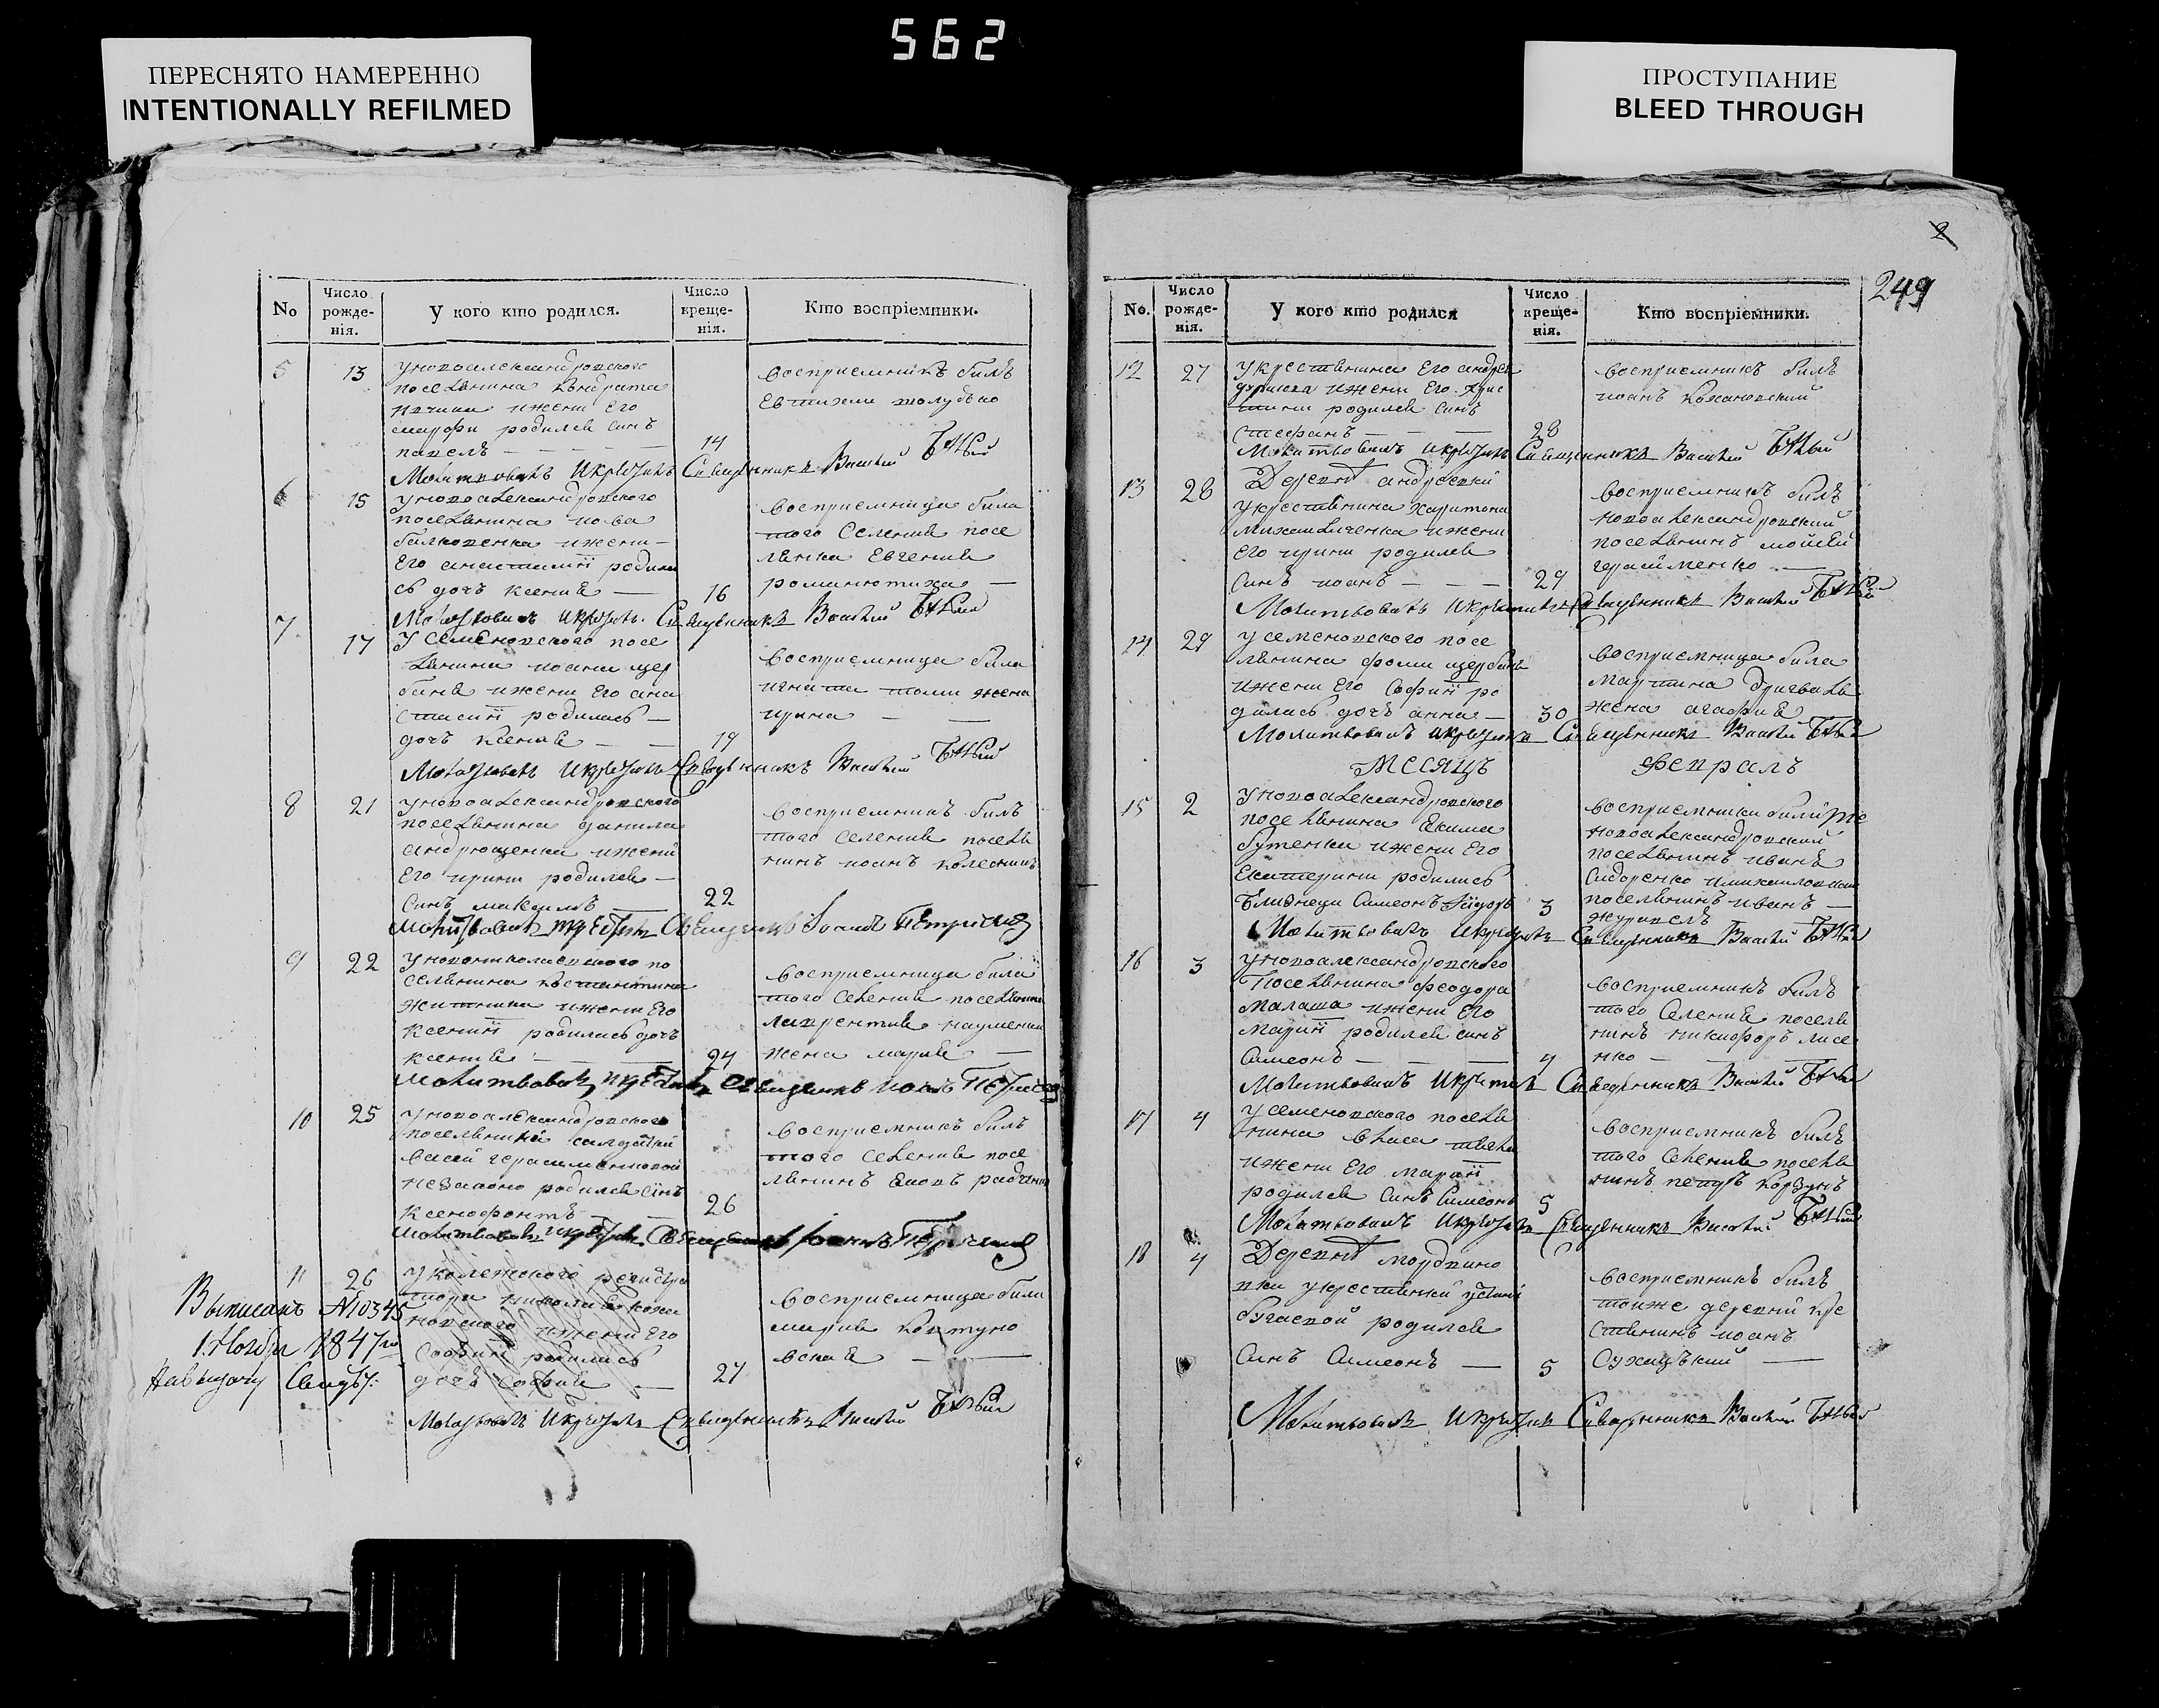 562
ПЕРЕСНЯТО НАМЕРЕННО
INTENTIONALLY REFILMED
ПРОСТУПАНИЕ
BLEED THROUGH
2
249
No
Число рожде-нія.
У кого кто родился.
Число креще-нія.
Кто воспріемники.
5
13
уновоалександровского
поселянина кондрата
ижени Его
марфи родился синъ
павелъ
14
восприемникъ билъ
Евтихи голубенко
Молитвовалъ икрестилъ Священникъ Василий
6
15
уновоалександровского
поселянина иова
балковенка ижени
Его анастасиӣ родила
сь дочъ ксения
16
восприемница била
того Селения посе
лянка Евгения
романютиха
Молитвовалъ икрестилъ Священникъ Василий
7
17
У семеновского посе
лянина иоана щер
баня ижени Его ана
стасиӣ родилась
дочъ ксения
19
восприемница била
игната томи жена
ирина
Молитвовалъ икрестилъ Священникъ Василий
8
21
уновоалександровского
поселянина данила
андрющенка ижени
Его ирини родился
Синъ максимъ
22
восприемникъ билъ
того селения поселя
нинъ иоанъ колесникъ
молитвовалъ икрестилъ Священникъ Иоанъ Петриченко
9
22
уновониколаевского по
селянина костантина
житника ижени Его
ксениӣ родилась дочъ
ксения
24
восприемница била
того селения поселянина
лаврентия науменка
жена мария
молитвовалъ икрестилъ Священникъ Иоанъ
10
25
уновоалександровского
поселянкӣ салдаткӣ
васӣ герасименковой
незаконо родился синъ
ксенофонтъ
26
восприемникъ билъ
того селения посе
лянинъ яковъ радченко
молитвовалъ икрестилъ Священникъ Иоанъ
11
26
уколежского регистра
тора николая кожа
новского ижени Его
Софиӣ родилась
дочъ София
27
восприемница била
мария ковтуно
вская
Молитвовалъ икрестилъ Священникъ Василий
Выписанъ №10345
1. Ноября 1847го
Навыдачу Свидѣт:
No.
Число рожде-нія.
У кого кто родился
Число креще-нія.
Кто воспріемники.
12
27
укрестянина Его андрея
ижени Его хрис
тини родился синъ
стефанъ
28
восприемникъ билъ
иоанъ Кожановский
Молитвовалъ икрестилъ Священникъ Василий
13
28
Деревнѣ андреевкӣ
укрестянина харитона
михаиличенка ижени
Его ирини родился
синъ иоанъ
29
восприемникъ билъ
новоалександровский
поселянинъ мойсей
герасименко
Молитвовалъ икрестилъ Священникъ Василий
14
29
усеменовского посе
лянина фоми щербаня
ижени Его Софиӣ ро
дилась дочъ анна
30
восприемница била
мартина
жена агафия
Молитвовалъ икрестилъ Священникъ Василий
Месяцъ Февралъ
15
2
уновоалександровского
поселянина якима
бутенка ижени Его
Екатерини родились
близнеци Симеонъ
3
восприемники били
новоалександровский
поселянинъ иванъ
Сидоренко имихаиловский
поселянинъ иванъ
журавелъ
Молитвовалъ икрестилъ Священникъ Василий
16
3
уновоалександровского
Поселянина феодора
малаша ижени Его
мариӣ родился синъ
Симеонъ
4
восприемникъ билъ
того Селения поселя
нинъ никифоръ лисе
нко
Молитвовалъ икрестилъ Священникъ Василий
17
4
усеменовского поселя
нина власа
ижени Его мариӣ
родился синъ Симеонъ
5
восприемникъ билъ
того Селения поселя
нинъ петръ корзунъ
Молитвовалъ икрестилъ Священникъ Василий
18
4
Деревнѣ мордвино
вки укрестянки устинӣ
бугаевой родился
Синъ Симеонъ
5
восприемникъ билъ
тоиже деревнӣ кре
стянинъ иоанъ
Молитвовалъ икрестилъ Священникъ Василий